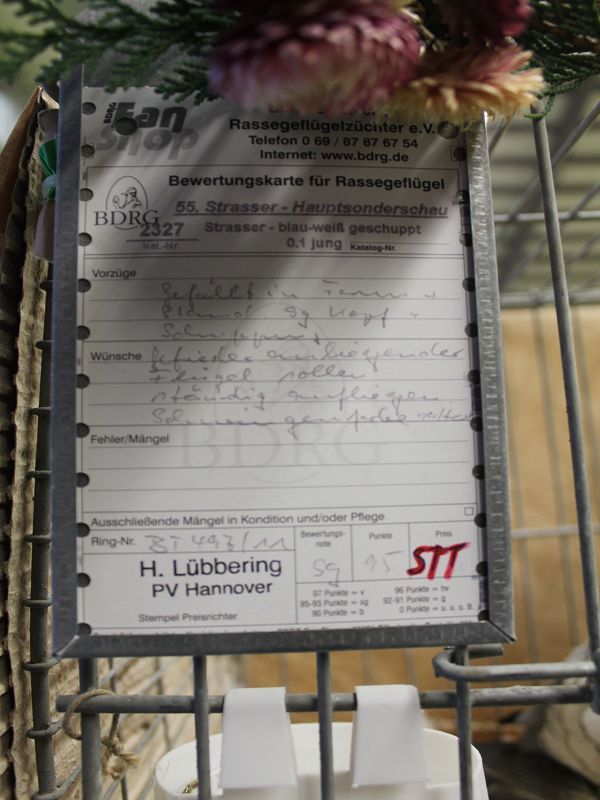 BDRG
Fan
Shop
Rassegeflügelzüchter e.V.
Telefon 0 69 / 87 87 67 54
Internet: www.bdrg.de
Bewertungskarte für Rassegeflügel
BDRG
55. Strasser - Hauptsonderschau
2327 Strasser - blau-weiß geschuppt
Kat.-Nr. 0.1 jung Katalog-Nr.
Vorzüge
Gefällt in Form +
Stand Sg Kopf +
Schuppung
Wünsche Gefieder anliegender
Flügel sollen
ständig aufliegen
Schwingenfarbe
Fehler/Mängel
BDRG
Ausschließende Mängel in Kondition und/oder Pflege
Ring-Nr. BT 497/11
Bewertungs-note Punkte Preis
Sg 95 STT
H. Lübbering
PV Hannover
97 Punkte = v 96 Punkte = hv
95-93 Punkte = sg 92-91 Punkte = g
90 Punkte = b 0 Punkte = u. u. o. B.
Stempel Preisrichter